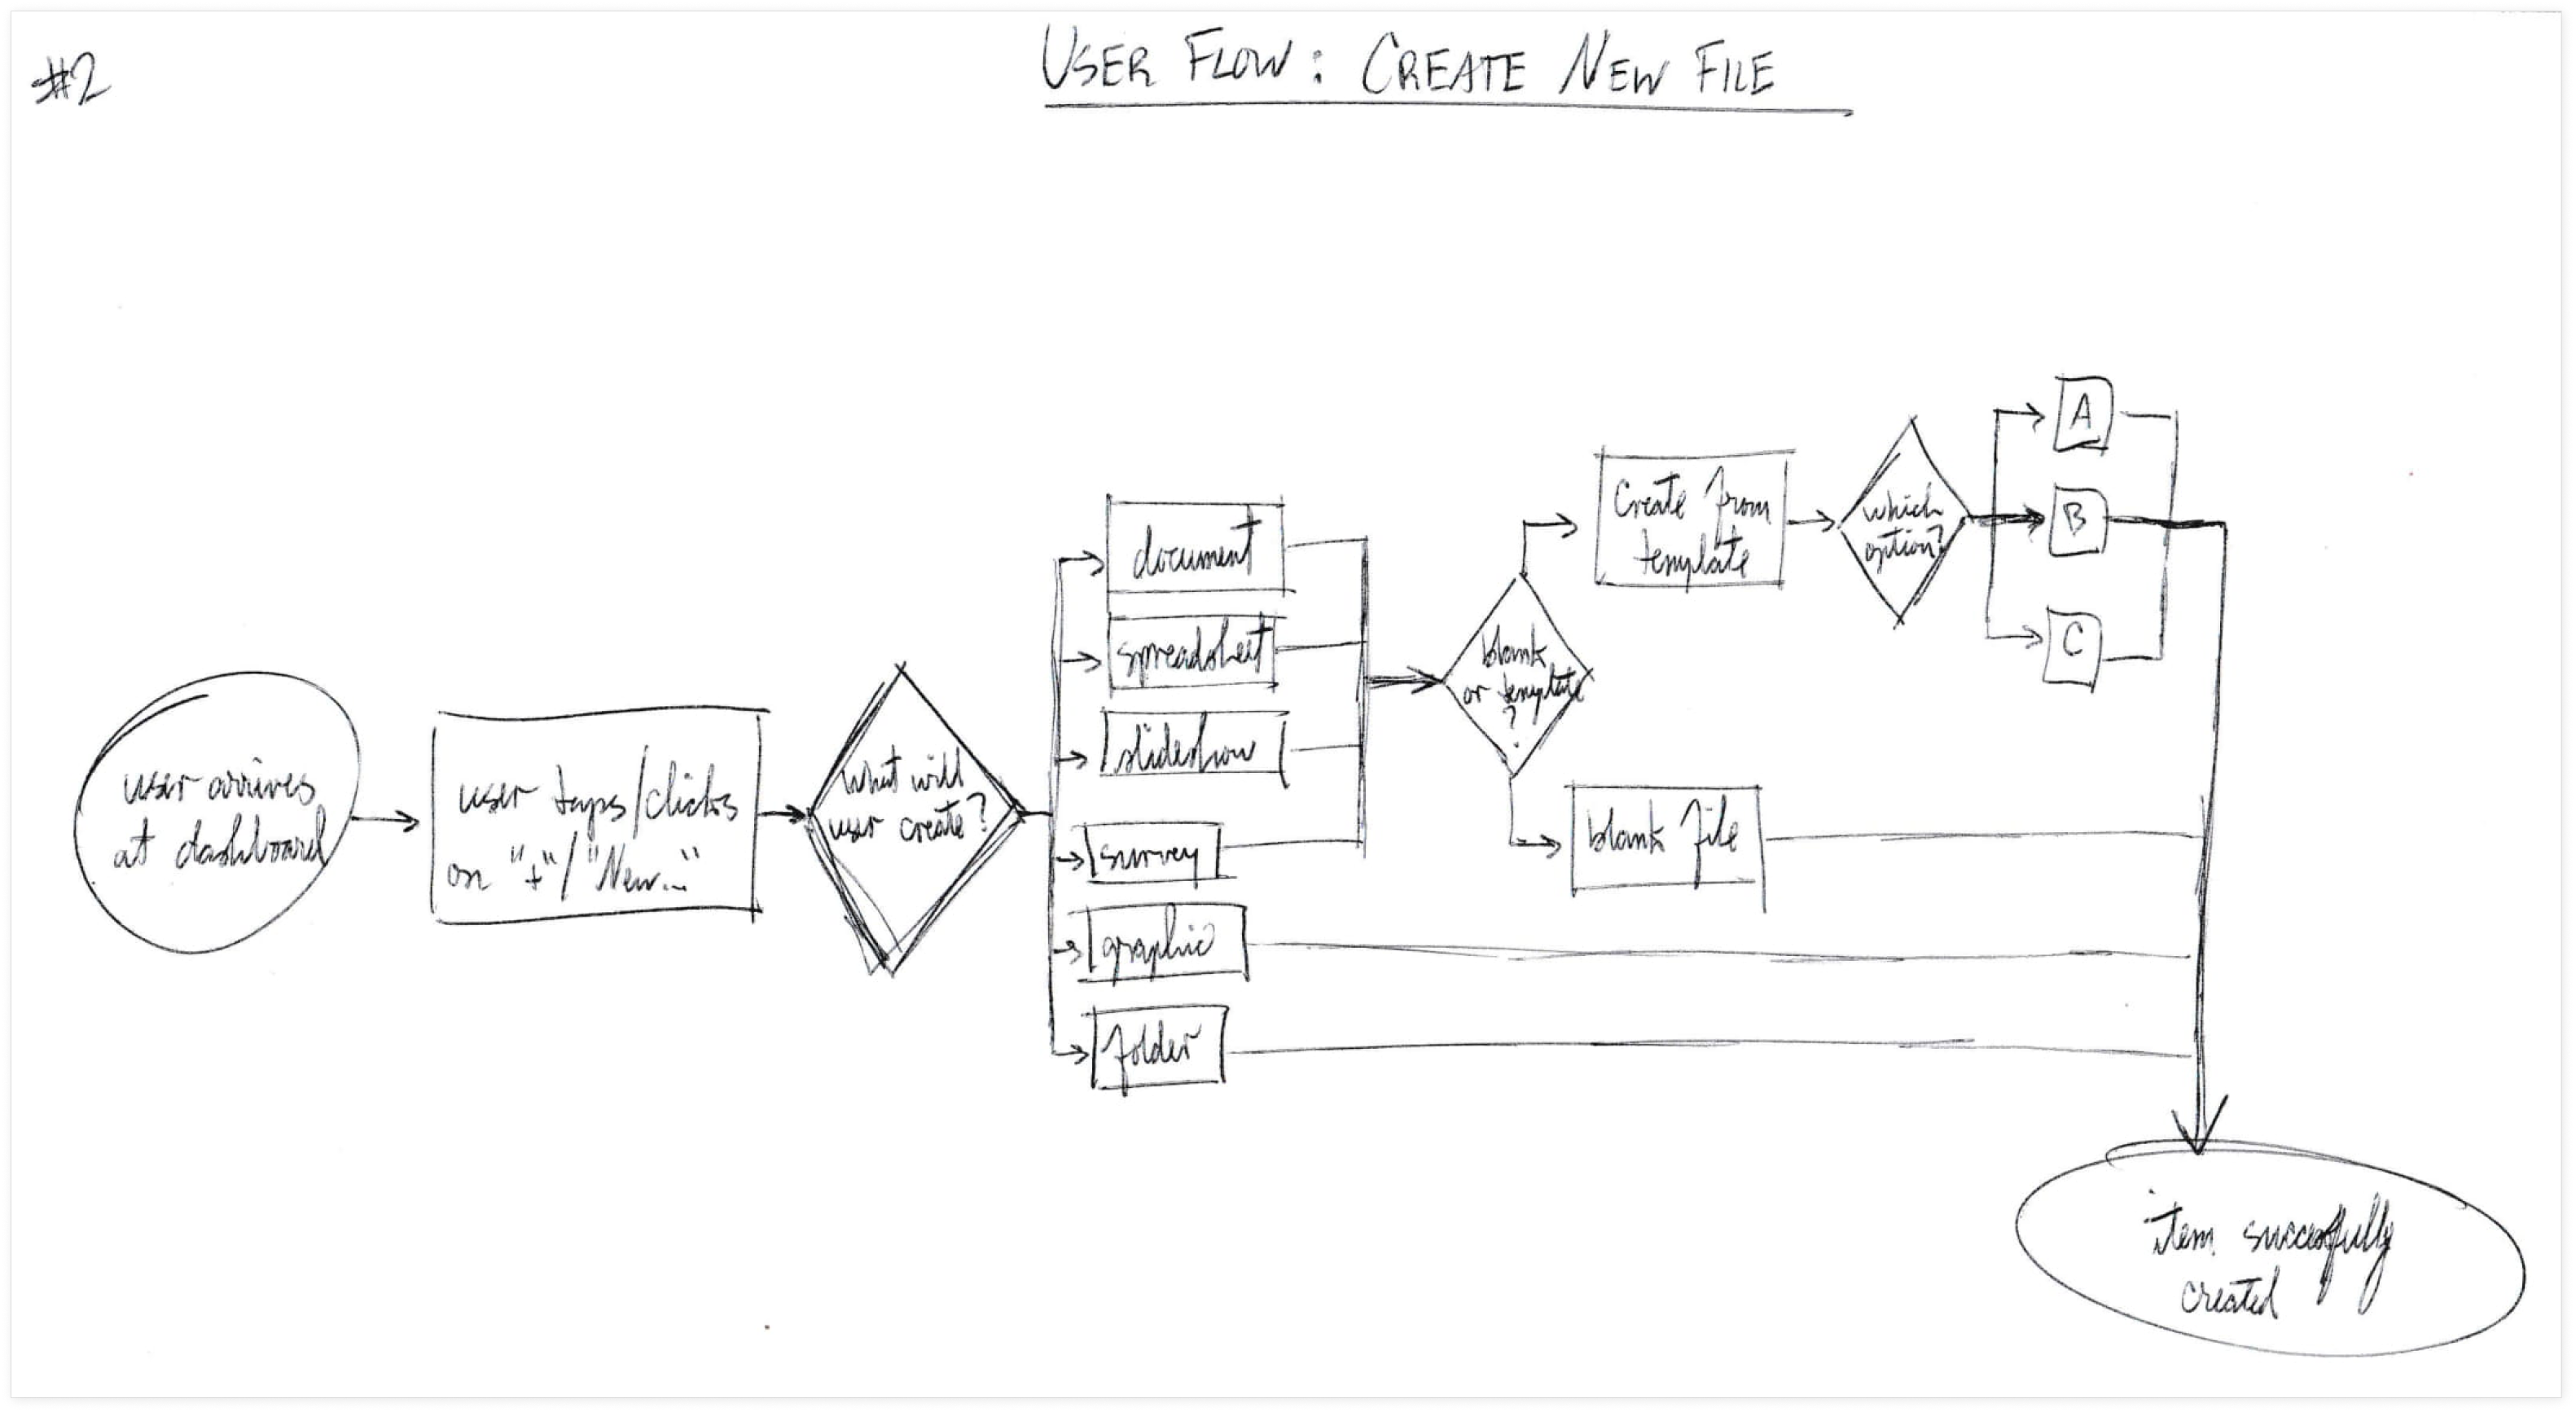 #2
USER FLOW: CREATE NEW FILE
user arrives
at dashboard
user taps/clicks
on "+"/"New..."
What will
user create?
document
spreadsheet
slideshow
survey
graphic
folder
blank
or template
?
Create from
template
blank file
which
option?
A
B
C
item successfully
created